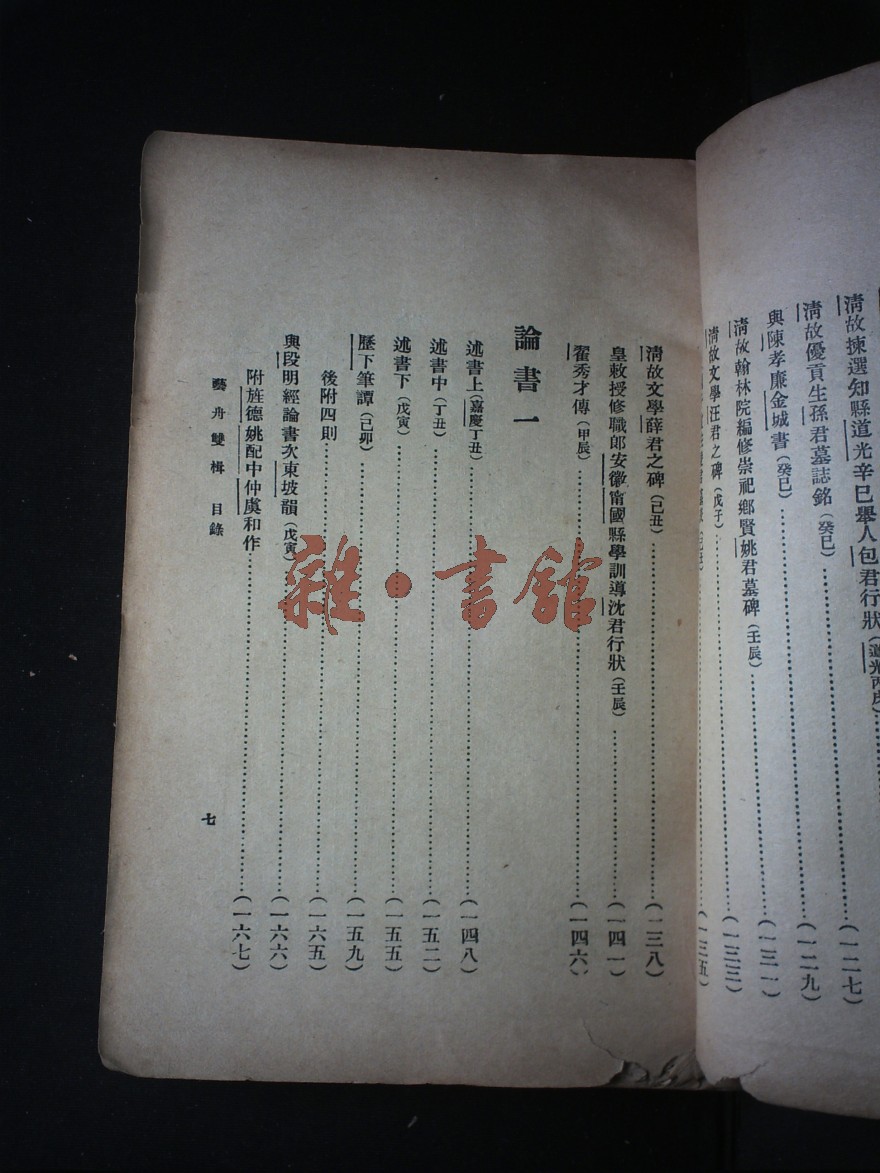 清故揀選知縣道光辛巳舉人包君行狀(道光丙戌)……(一二七)
清故優貢生孫君墓誌銘(癸巳)……(一二九)
與陳孝廉金城書(癸巳)……(一三一)
清故翰林院編修崇祀鄉賢姚君墓碑(壬辰)……(一三三)
清故文學汪君之碑(戊子)……(一三五)
清故文學薛君之碑(己丑)……(一三八)
皇敕授修職郎安徽甯國縣學訓導沈君行狀(壬辰)……(一四一)
翟秀才傳(甲辰)……(一四六)
論書一
述書上(嘉慶丁丑)……(一四八)
述書中(丁丑)……(一五二)
述書下(戊寅)……(一五五)
歷下筆譚(己卯)……(一五九)
後附四則……(一六五)
與段明經論書次東坡韻(戊寅)……(一六六)
附旌德姚配中仲虞和作……(一六七)
藝舟雙楫 目錄
七
雜·書館